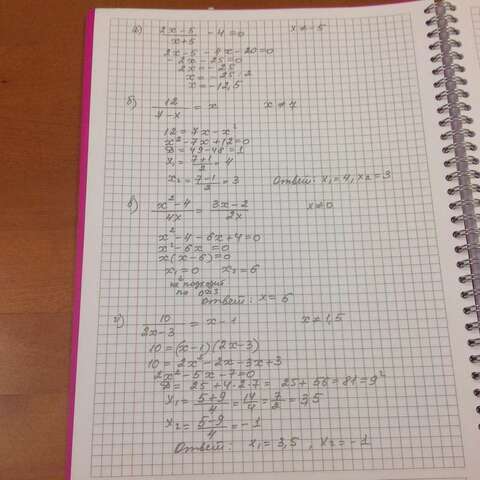 а) (2x-5)/(x+5) - 4 = 0 x ≠ -5
2x-5-4x-20=0
-2x-25=0
2x=-25
x=-25:2
x=-12,5
б) 12/(7-x) = x x ≠ 7
12=7x-x²
x²-7x+12=0
D=49-48=1
x₁=(7+1)/2=4
x₂=(7-1)/2=3 Ответ: x₁=4, x₂=3
в) (x²-4)/4x = (3x-2)/2x x≠0
x²-4-6x+4=0
x²-6x=0
x(x-6)=0
x₁=0 x₂=6
не подходит
по ОДЗ
Ответ: x=6
г) 10/(2x-3) = x-1 x≠1,5
10=(x-1)(2x-3)
10=2x²-2x-3x+3
2x²-5x-7=0
D=25+4·2·7=25+56=81=9²
x₁=(5+9)/4=14/4=7/2=3,5
x₂=(5-9)/4=-1
Ответ: x₁=3,5, x₂=-1